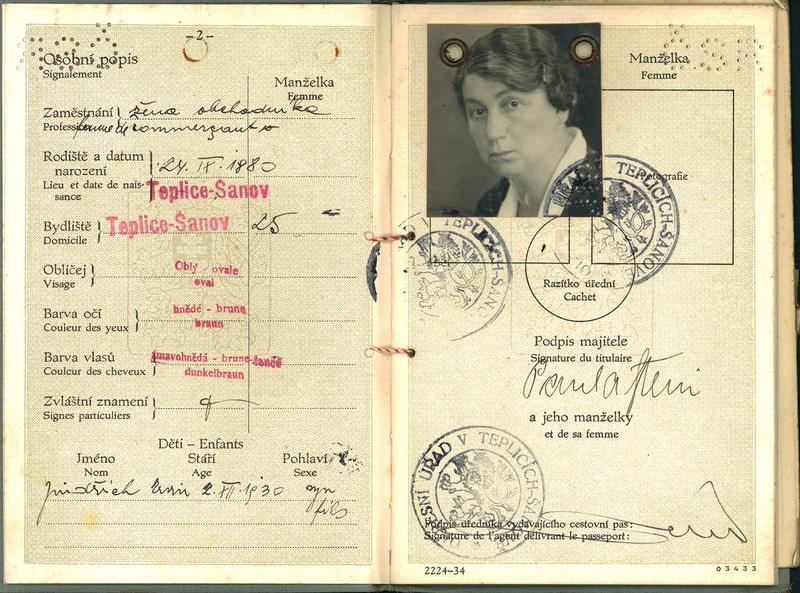 –2–
Osobní popis
Signalement
Manželka
Femme
Zaměstnání žena obchodníka
Profession femme de commerçant
Rodiště a datum narození 24. IX. 1880
Lieu et date de naissance Teplice-Šanov
Bydliště Teplice-Šanov 25
Domicile
Obličej Oblý - ovale
Visage oval
Barva očí hnědé - brune
Couleur des yeux braun
Barva vlasů tmavohnědá - brune-foncé
Couleur des cheveux dunkelbraun
Zvláštní znamení
Signes particuliers
Děti – Enfants
Jméno Stáří Pohlaví
Nom Age Sexe
Jindřich 1930 syn
fils
Manželka
Femme
Fotografie
ÚŘAD V TEPLICÍCH-ŠANOVĚ
TEPLICÍCH-ŠANOVĚ
Razítko úřední
Cachet
Podpis majitele
Signature du titulaire
Paula Stein
a jeho manželky
et de sa femme
ÚŘAD V TEPLICÍCH-ŠANOVĚ
Podpis úředníka vydávajícího cestovní pas:
Signature de l'agent délivrant le passeport:
2224-34
03433